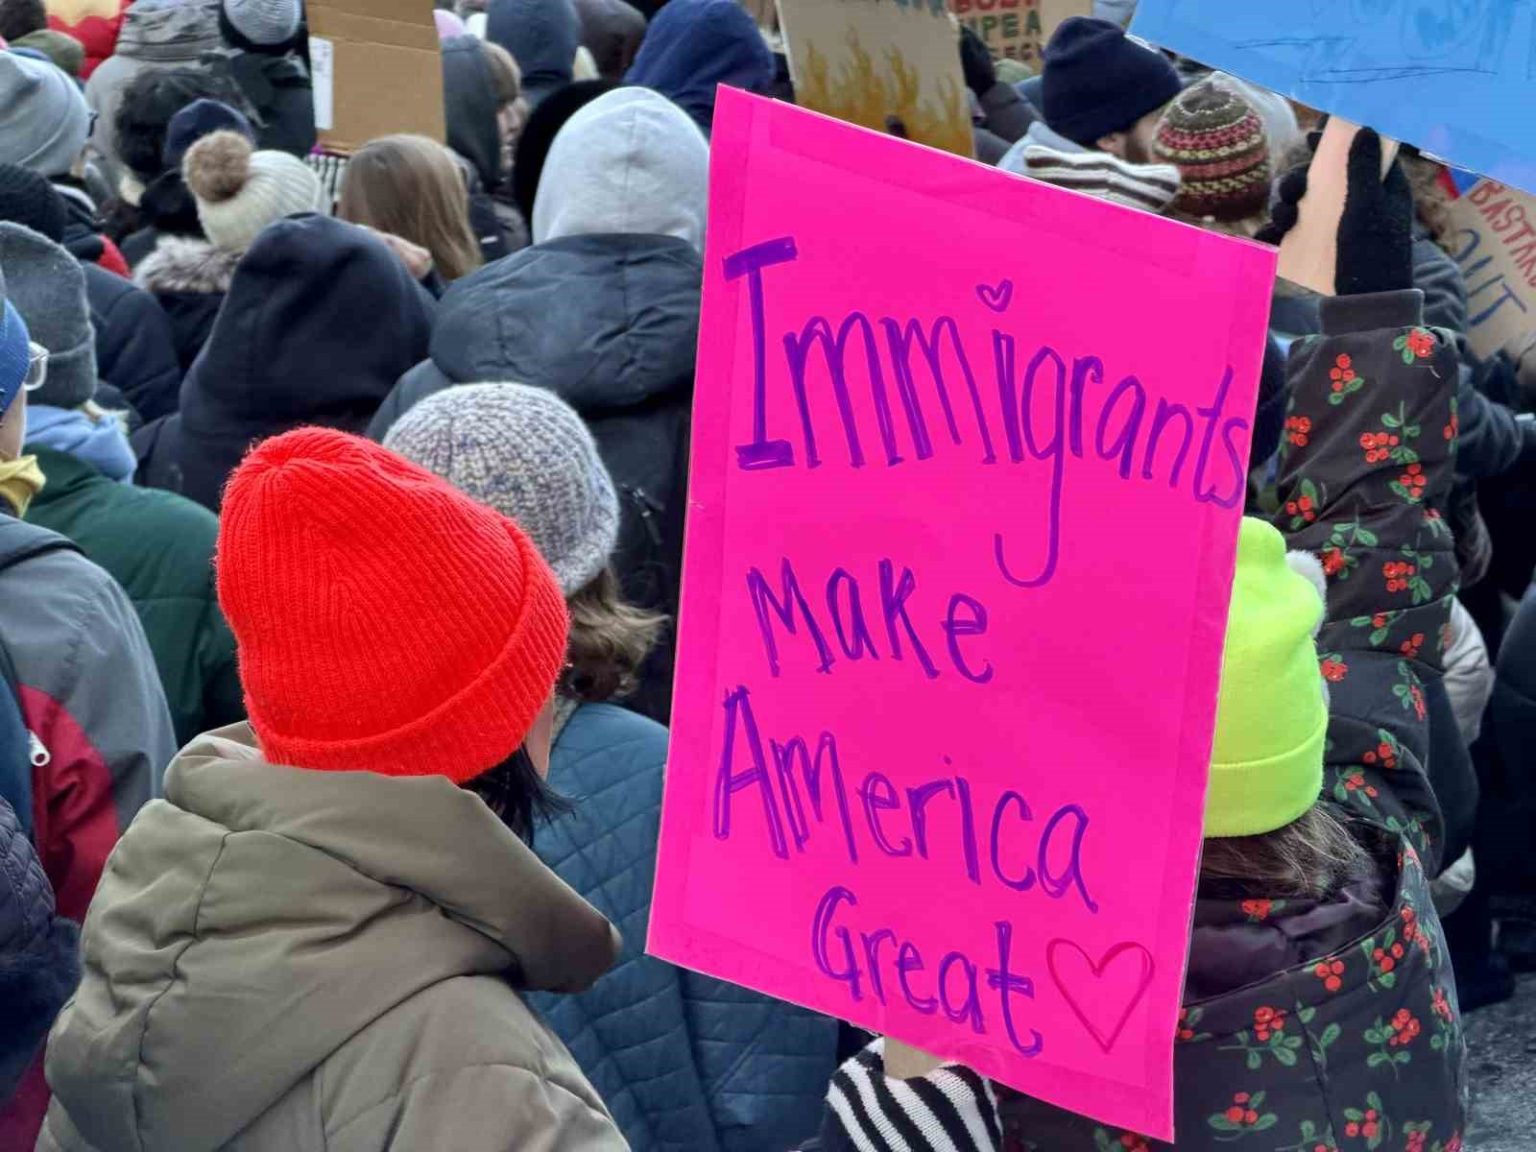 Immigrants
Make
America
Great
OUT